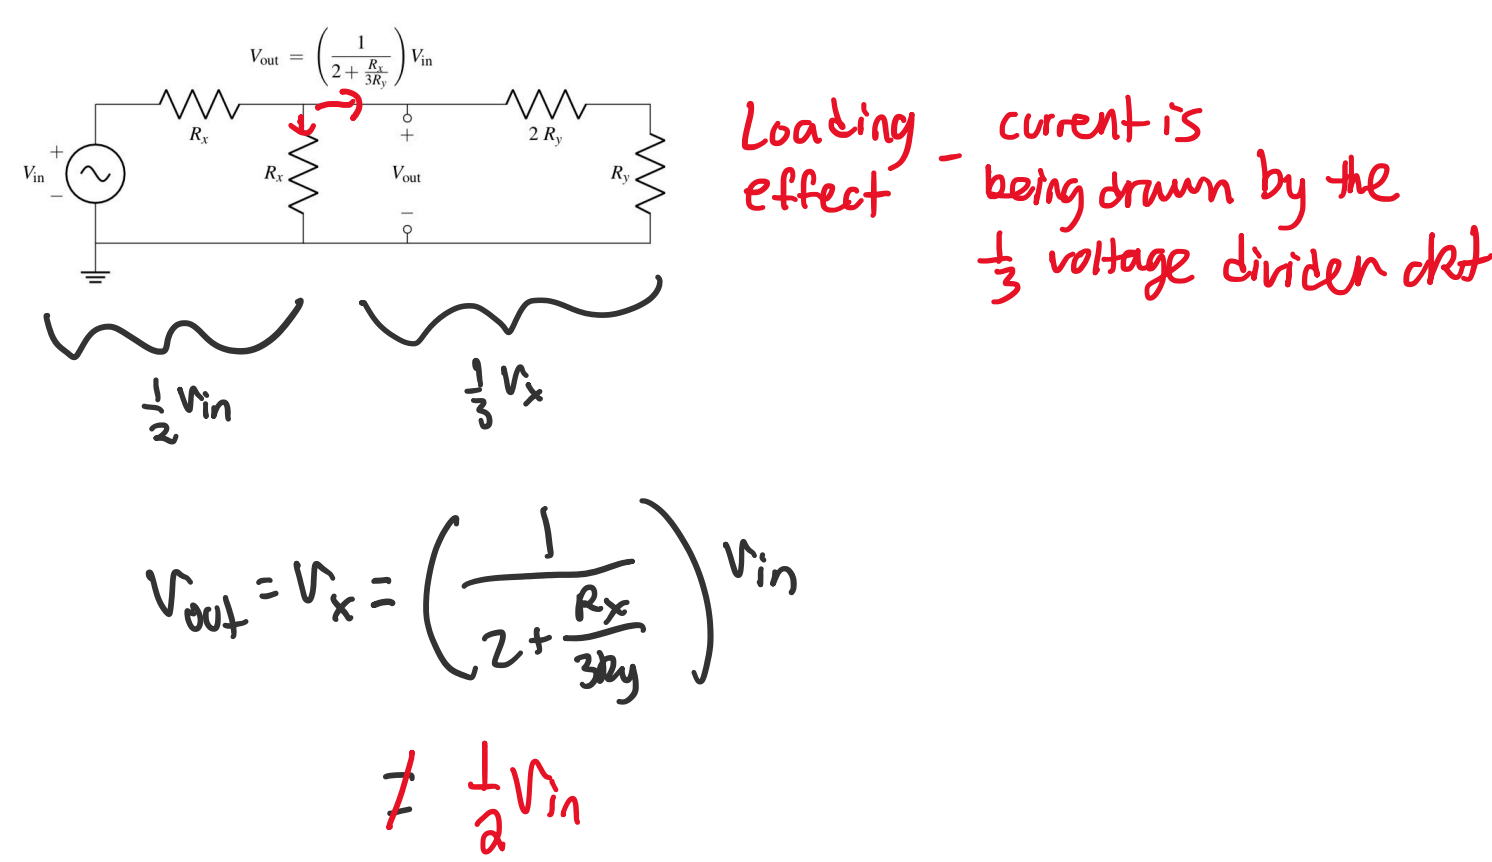 Vout = (1 / (2 + Rx/3Ry)) Vin
Rx
2 Ry
+
Vin
−
Rx
+
Vout
−
Ry
Loading effect - current is being drawn by the 1/3 voltage divider ckt
1/2 Vin
1/3 Vx
Vout = Vx = (1 / (2 + Rx/3Ry)) Vin
≠ 1/2 Vin